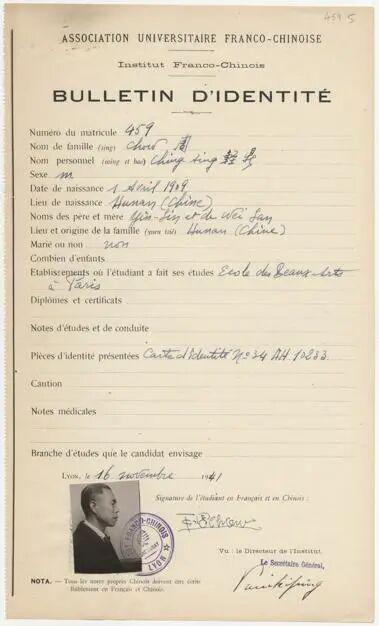 459 5
ASSOCIATION UNIVERSITAIRE FRANCO-CHINOISE
Institut Franco-Chinois
BULLETIN D'IDENTITÉ
Numéro du matricule 459
Nom de famille (sing) Chow 周
Nom personnel (ming et hao) Ching sing
Sexe m
Date de naissance 1 Avril 1909
Lieu de naissance Hunan (Chine)
Noms des père et mère Yin-Sin et de Wei San
Lieu et origine de la famille (yuen tsi) Hunan (Chine)
Marié ou non non
Combien d'enfants
Etablissements où l'étudiant a fait ses études Ecole des Beaux-Arts
à Paris
Diplômes et certificats
Notes d'études et de conduite
Pièces d'identité présentées Carte d'identité No 34 AH 10833
Caution
Notes médicales
Branche d'études que le candidat envisage
Lyon, le 16 novembre 1941
Signature de l'étudiant en Français et en Chinois :
Chow
FRANCO-CHINOIS
LYON
Vu : le Directeur de l'Institut
Le Secrétaire Général,
NOTA. — Tous les noms propres Chinois doivent être écrits
lisiblement en Français et Chinois.